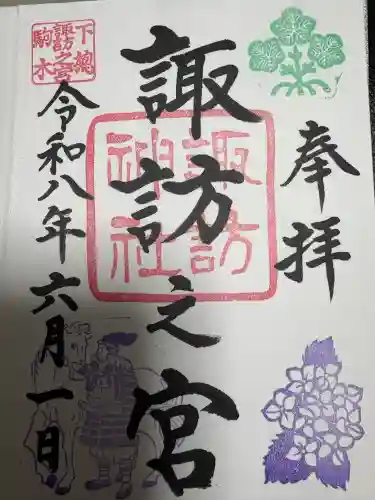 奉拝
諏訪之宮
諏訪
神社
下総
諏訪之宮
駒木
令和八年六月一日